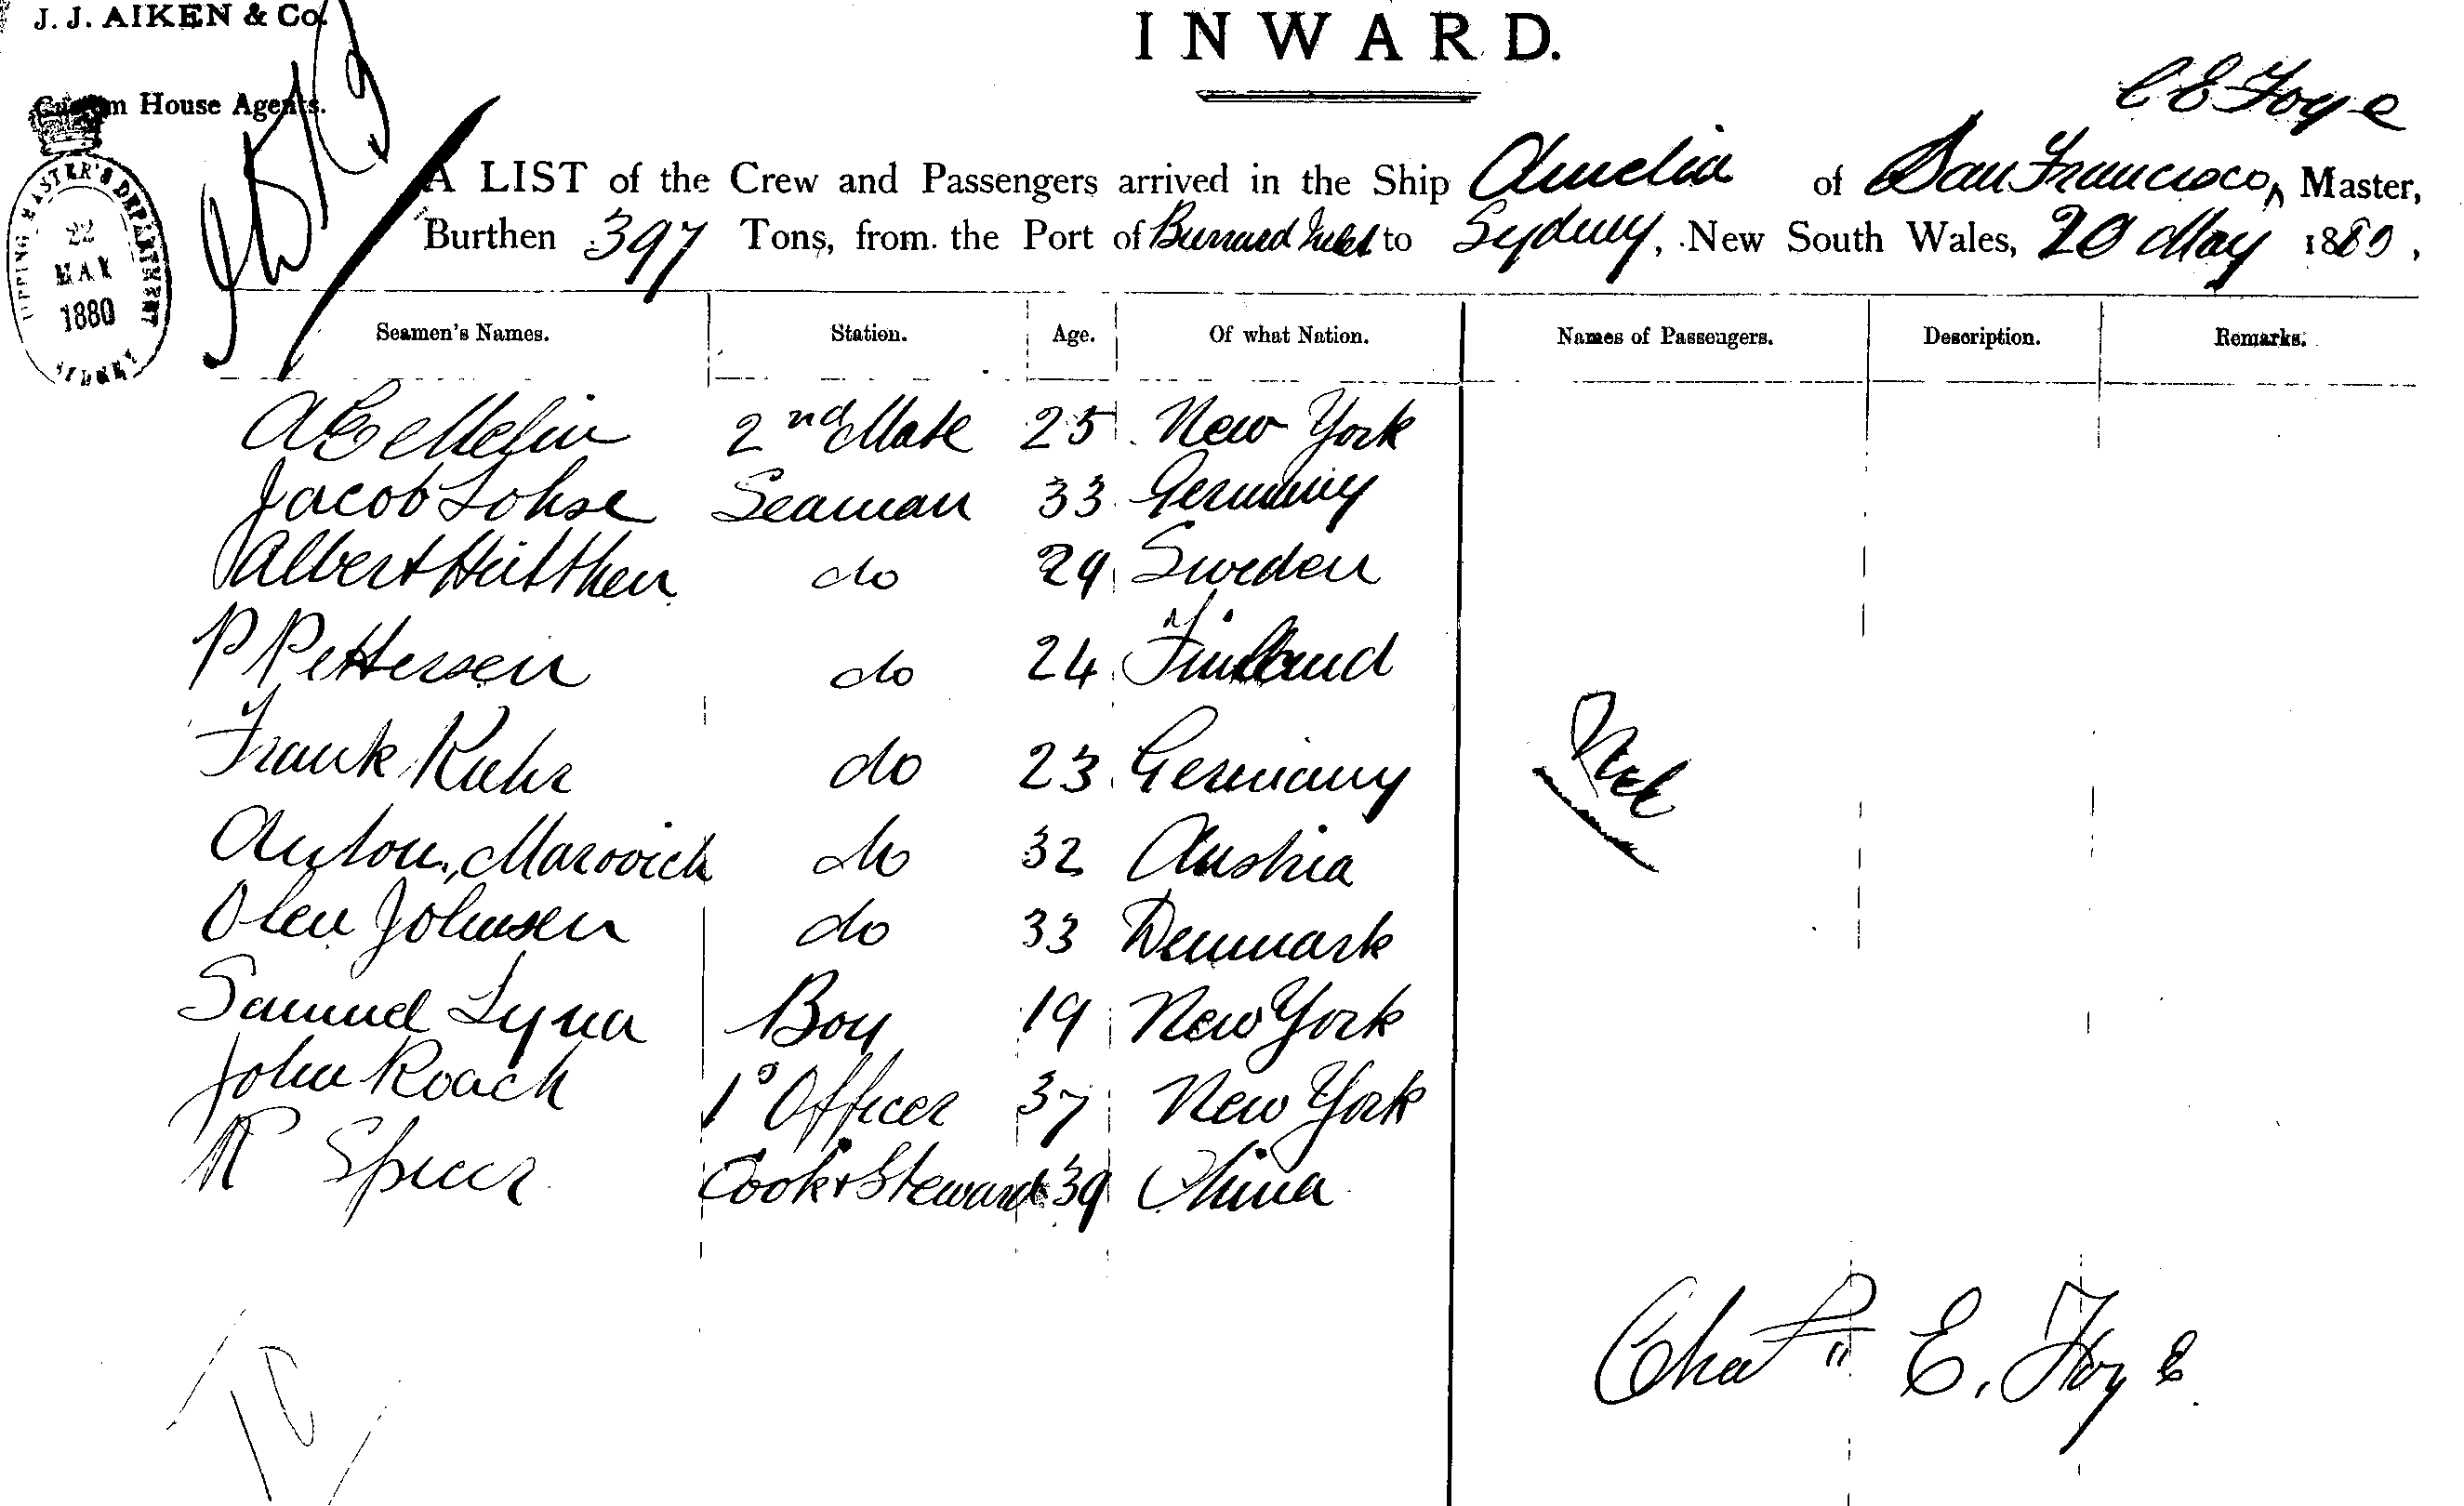 J. J. AIKEN & Co.
Custom House Agents.
INWARD.
C E Foye
A LIST of the Crew and Passengers arrived in the Ship Amelia of San Francisco, Master,
Burthen 397 Tons, from the Port of Burrard Inlet to Sydney, New South Wales, 20 May 1880,
SHIPPING MASTER'S DEPARTMENT
22
MAY
1880
SYDNEY
Seamen's Names. Station. Age. Of what Nation. Names of Passengers. Description. Remarks.
2nd Mate 25 New York
Jacob Lohse Seaman 33 Germany
Albert Hutthen do 29 Sweden
P Pettersen do 24 Finland
Frank Kuhr do 23 Germany
Anton Marovich do 32 Austria
Olen Johnsen do 33 Denmark
Samuel Lyna Boy 19 New York
John Roach 1º Officer 37 New York
R Spicer Cook & Steward 39 China
Nil
Chas E. Foye
10